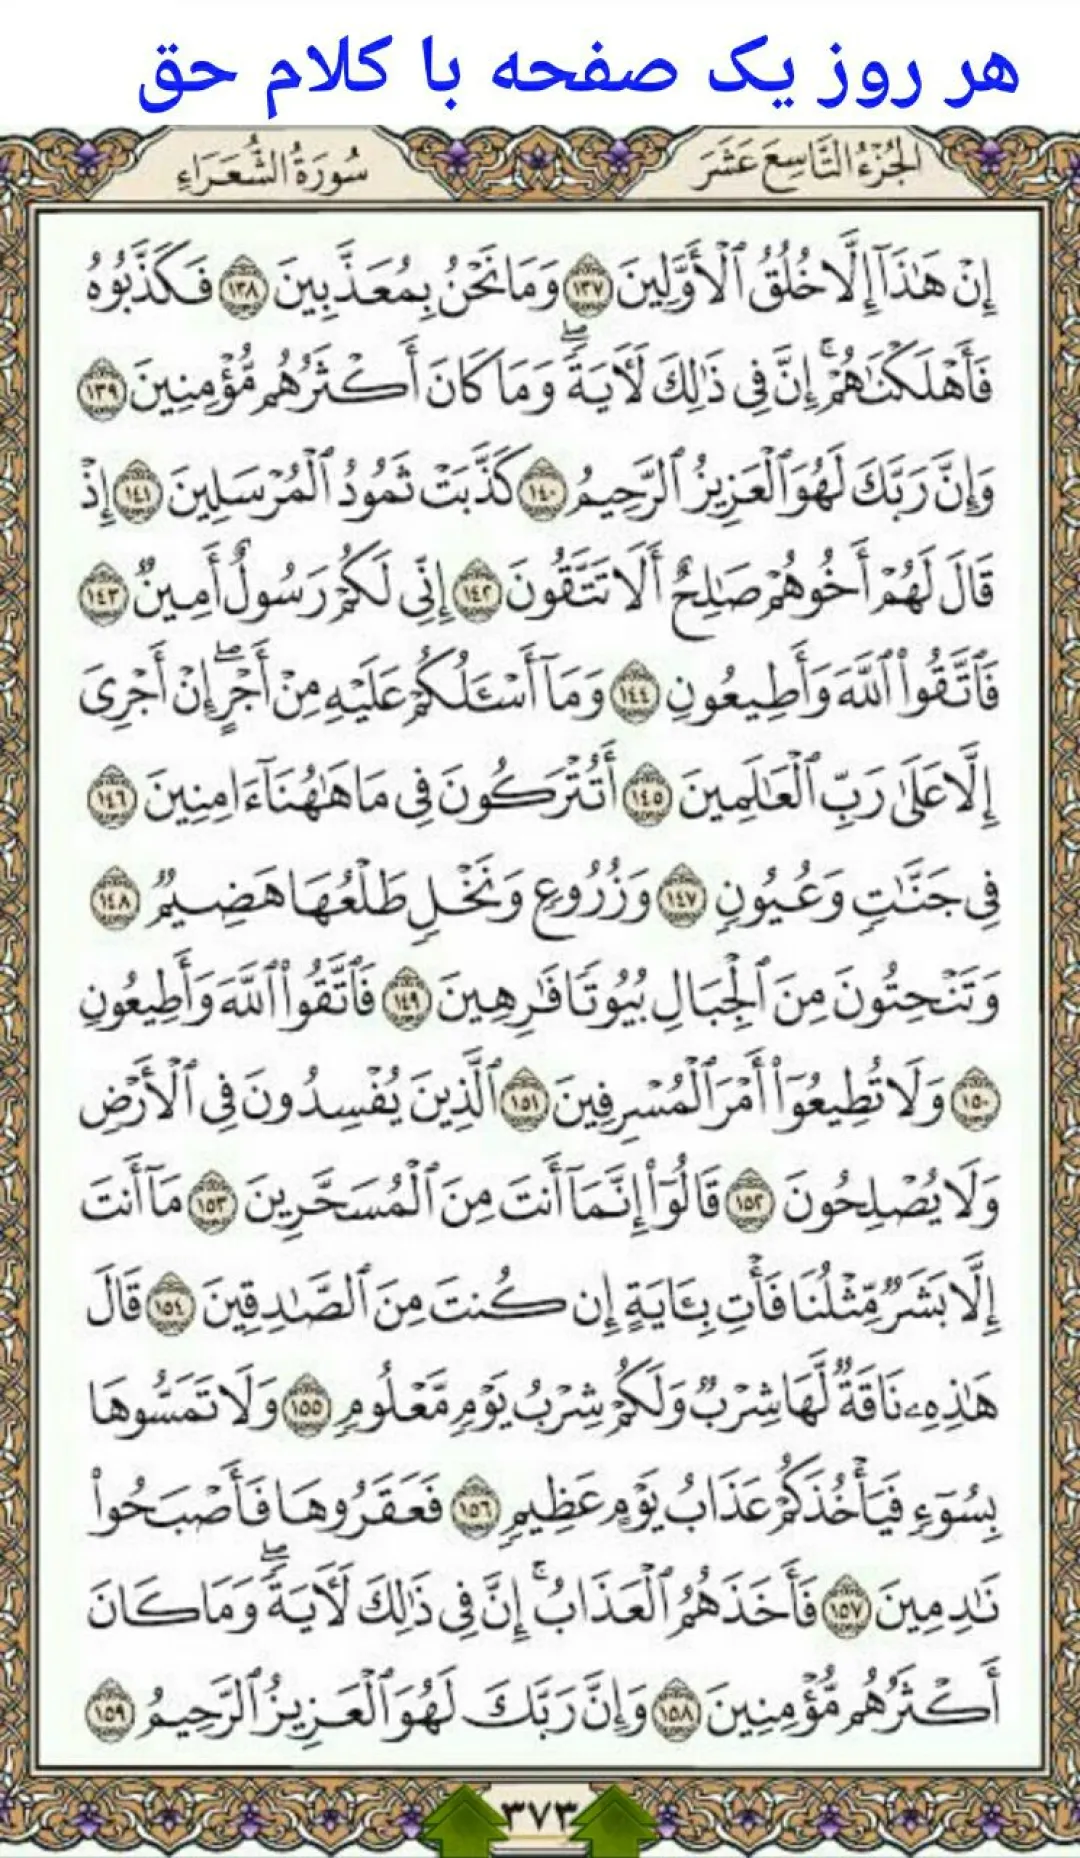 هر روز یک صفحه با کلام حق
الجُزْءُ التَّاسِعَ عَشَرَ
سُورَةُ الشُّعَرَاءِ
إِنْ هَٰذَآ إِلَّا خُلُقُ ٱلْأَوَّلِينَ ١٣٧ وَمَا نَحْنُ بِمُعَذَّبِينَ ١٣٨ فَكَذَّبُوهُ
فَأَهْلَكْنَٰهُمْ ۚ إِنَّ فِى ذَٰلِكَ لَءَايَةً ۖ وَمَا كَانَ أَكْثَرُهُم مُّؤْمِنِينَ ١٣٩
وَإِنَّ رَبَّكَ لَهُوَ ٱلْعَزِيزُ ٱلرَّحِيمُ ١٤٠ كَذَّبَتْ ثَمُودُ ٱلْمُرْسَلِينَ ١٤١ إِذْ
قَالَ لَهُمْ أَخُوهُمْ صَٰلِحٌ أَلَا تَتَّقُونَ ١٤٢ إِنِّى لَكُمْ رَسُولٌ أَمِينٌ ١٤٣
فَٱتَّقُوا۟ ٱللَّهَ وَأَطِيعُونِ ١٤٤ وَمَآ أَسْـَٔلُكُمْ عَلَيْهِ مِنْ أَجْرٍ ۖ إِنْ أَجْرِىَ
إِلَّا عَلَىٰ رَبِّ ٱلْعَٰلَمِينَ ١٤٥ أَتُتْرَكُونَ فِى مَا هَٰهُنَآ ءَامِنِينَ ١٤٦
فِى جَنَّٰتٍ وَعُيُونٍ ١٤٧ وَزُرُوعٍ وَنَخْلٍ طَلْعُهَا هَضِيمٌ ١٤٨
وَتَنْحِتُونَ مِنَ ٱلْجِبَالِ بُيُوتًا فَٰرِهِينَ ١٤٩ فَٱتَّقُوا۟ ٱللَّهَ وَأَطِيعُونِ
١٥٠ وَلَا تُطِيعُوٓا۟ أَمْرَ ٱلْمُسْرِفِينَ ١٥١ ٱلَّذِينَ يُفْسِدُونَ فِى ٱلْأَرْضِ
وَلَا يُصْلِحُونَ ١٥٢ قَالُوٓا۟ إِنَّمَآ أَنتَ مِنَ ٱلْمُسَحَّرِينَ ١٥٣ مَآ أَنتَ
إِلَّا بَشَرٌ مِّثْلُنَا فَأْتِ بِـَٔايَةٍ إِن كُنتَ مِنَ ٱلصَّٰدِقِينَ ١٥٤ قَالَ
هَٰذِهِۦ نَاقَةٌ لَّهَا شِرْبٌ وَلَكُمْ شِرْبُ يَوْمٍ مَّعْلُومٍ ١٥٥ وَلَا تَمَسُّوهَا
بِسُوٓءٍ فَيَأْخُذَكُمْ عَذَابُ يَوْمٍ عَظِيمٍ ١٥٦ فَعَقَرُوهَا فَأَصْبَحُوا۟
نَٰدِمِينَ ١٥٧ فَأَخَذَهُمُ ٱلْعَذَابُ ۚ إِنَّ فِى ذَٰلِكَ لَءَايَةً ۖ وَمَا كَانَ
أَكْثَرُهُم مُّؤْمِنِينَ ١٥٨ وَإِنَّ رَبَّكَ لَهُوَ ٱلْعَزِيزُ ٱلرَّحِيمُ ١٥٩
٣٧٣